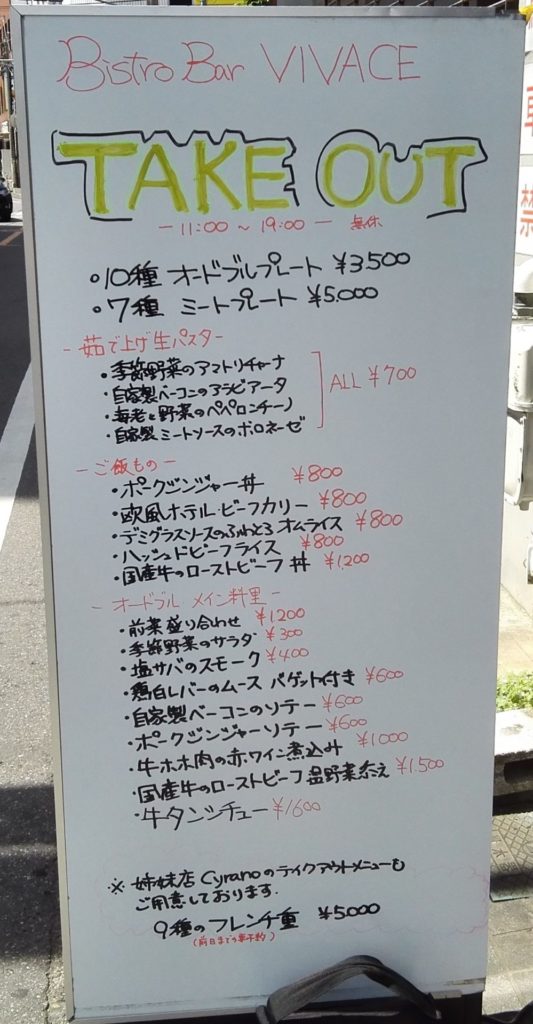 Bistro Bar VIVACE
TAKE OUT
ー 11:00 〜 19:00 ー 無休
・10種 オードブルプレート ¥3,500
・7種 ミートプレート ¥5,000
- 茹で上げ生パスター
・季節野菜のアマトリチャーナ
・自家製ベーコンのアラビアータ
・海老と野菜のペペロンチーノ
・自家製ミートソースのボロネーゼ
ALL ¥700
ーご飯ものー
・ポークジンジャー丼 ¥800
・欧風ホテル・ビーフカリー ¥800
・デミグラスソースのふわとろオムライス ¥800
・ハッシュドビーフライス ¥800
・国産牛のローストビーフ丼 ¥1,200
- オードブル メイン料理 -
・前菜盛り合わせ ¥1,200
・季節野菜のサラダ ¥300
・塩サバのスモーク ¥400
・鶏白レバーのムース バゲット付き ¥600
・自家製ベーコンのソテー ¥600
・ポークジンジャーソテー ¥600
・牛ホホ肉の赤ワイン煮込み ¥1,000
・国産牛のローストビーフ 温野菜添え ¥1,500
・牛タンシチュー ¥1600
※ 姉妹店 Cyranoのテイクアウトメニューも
ご用意しております.
9種のフレンチ重 ¥5,000
(前日までの要予約)
禁